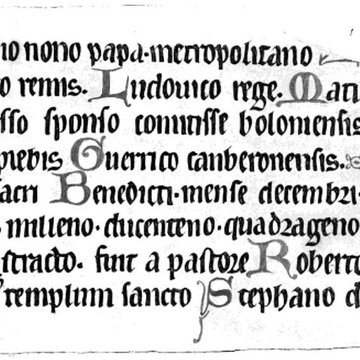 no nono papa·metropolitano
o remis. Ludouico rege. Mati
sso sponso comitisse bolomensis
plebis Guerrico canberonensis.
acri Benedicti·mense decembri·
milleno·ducenteno·quadrageno
stracto. fuit a pastore Roberto
templum sancto Stephano d